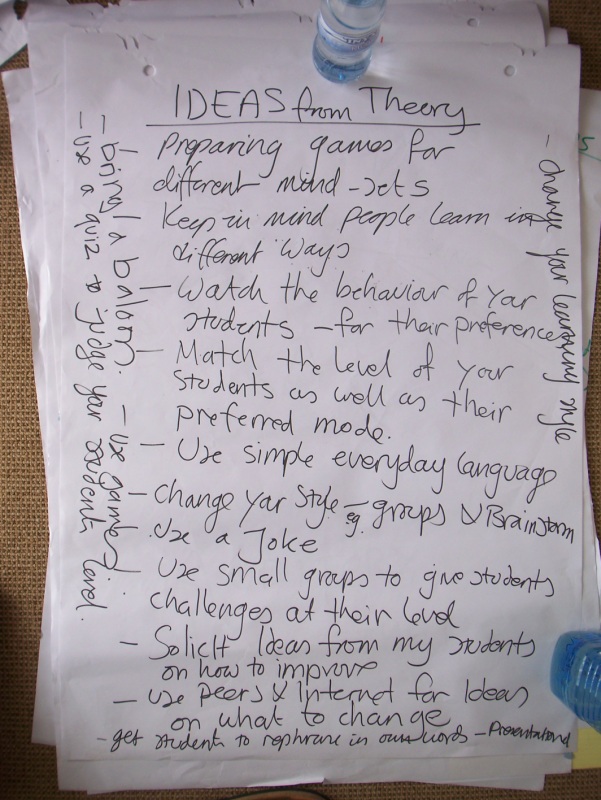 IDEAS from Theory
Preparing games for
different mind-sets
Keep in mind people learn in
different ways
- Watch the behaviour of your
students - for their preferences
- Match the level of your
students as well as their
preferred mode.
- Use simple everyday language
- change your style - eg. groups & Brainstorm
Use a Joke
Use small groups to give students
challenges at their level
- Solicit Ideas from my students
on how to improve
- use peers & internet for Ideas
on what to change
- get student to rephrase in own words - Presentations
- change your learning style
- bring a baloon. - use games
- use a quiz to judge your students level.